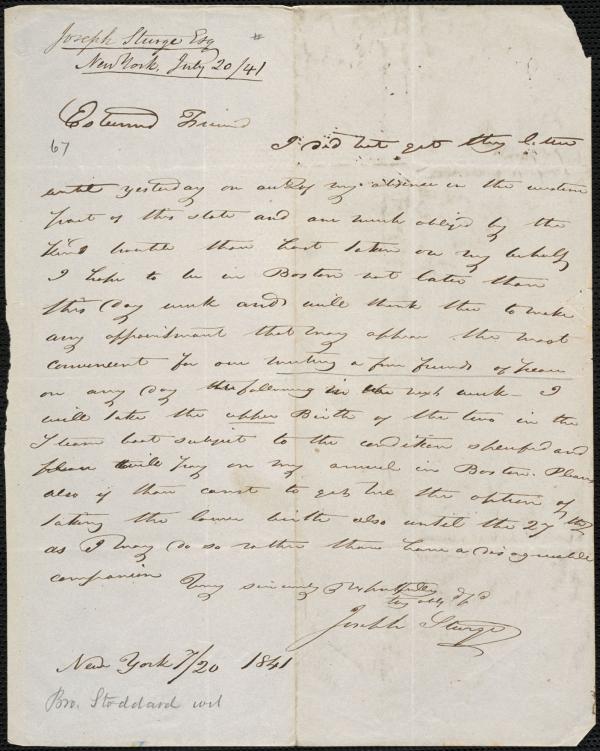 Joseph Sturge Esq
New York, July 20/41
Esteemed Friend
67
I did not get thy letter
until yesterday on acct of my absence in the western
part of this state and am much obliged by the
kind trouble thou hast taken on my behalf
I hope to be in Boston not later than
this day week and will thank thee to make
any appointment that may appear the most
convenient for our meeting a few friends of peace
on any day the following in the next week – I
will take the upper Birth of the two in the
Steam boat subject to the condition specified and
will pay on my arrival in Boston. Please
also if thou canst to get me the option of
taking the lower birth also until the 27 Inst
as I may do so rather than have a disagreeable
companion
Very sincerely & respectfully
thy obld fd
Joseph Sturge
New York 7/20 1841
Bro. Stoddard wil